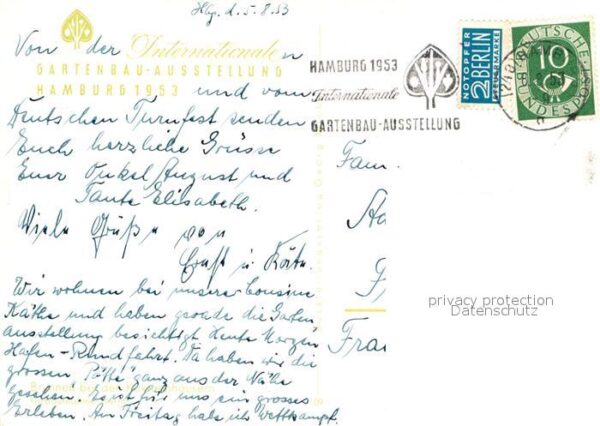 Hbg. d. 5.8.53
Von der Internationalen
GARTENBAU-AUSSTELLUNG
HAMBURG 1953
und vom
Deutschen Turnfest senden
Euch herzliche Grüsse
Euer Onkel August und
Tante Elisabeth.
Viele Grüße von
Ernst u. Käte.
Wir wohnen bei unserer Cousine
Käthe und haben gerade die Garten
ausstellung besichtigt. Heute Morgen
Hafen-Rundfahrt. Da haben wir die
grossen "Pötte" ganz aus der Nähe
gesehen. Es ist für uns ein grosses
Erleben. Am Freitag habe ich Wettkampf.
HAMBURG 1953
Internationale
GARTENBAU-AUSSTELLUNG
NOTOPFER
2 BERLIN
STEUERMARKE
DEUTSCHE
10
BUNDESPOST
Fam.
Fran
privacy protection
Datenschutz